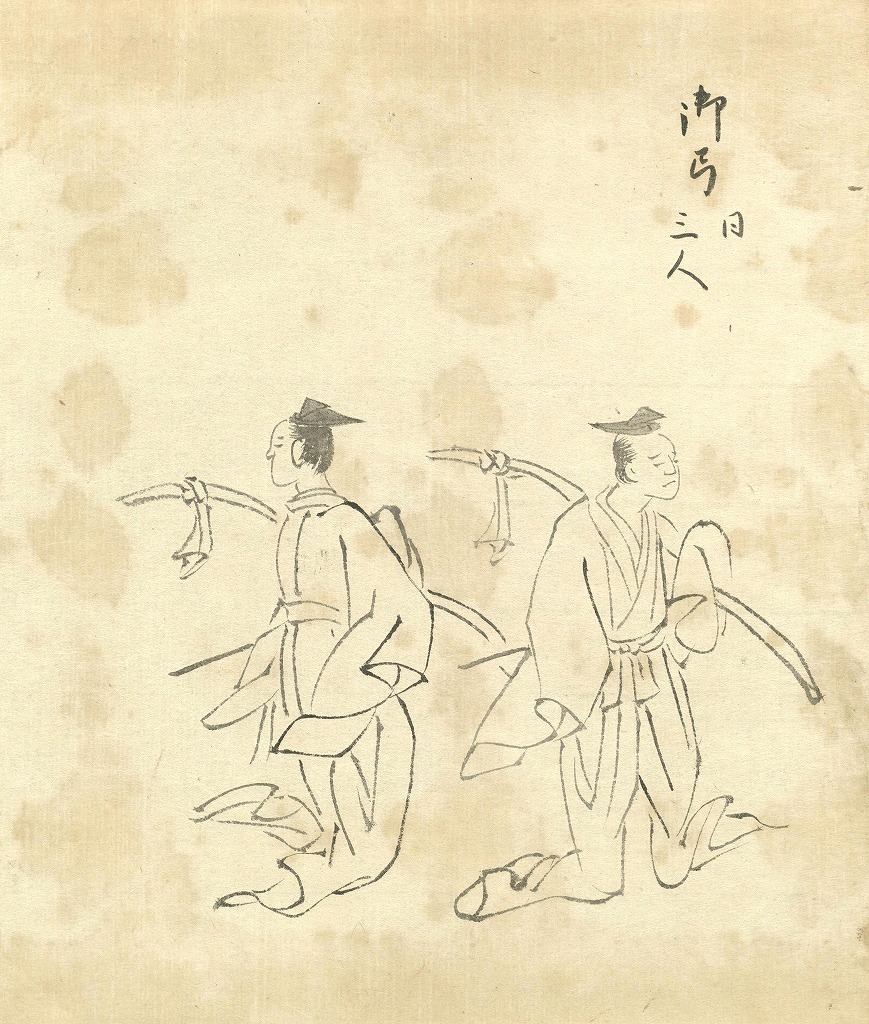 御弓
日
三人